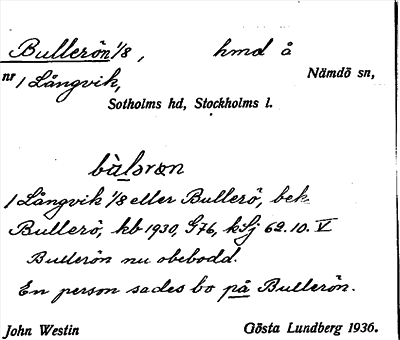 Bullerön 1/8, hmd å
nr 1 Långvik, Nämdö sn,
Sotholms hd, Stockholms l.
bùlərøn
1 Långvik 1/8 eller Bullerö, bek.
Bullerö, kb 1930, G76, kSj 62.10. V
Bullerön nu obebodd.
En person sades bo på Bullerön.
John Westin Gösta Lundberg 1936.